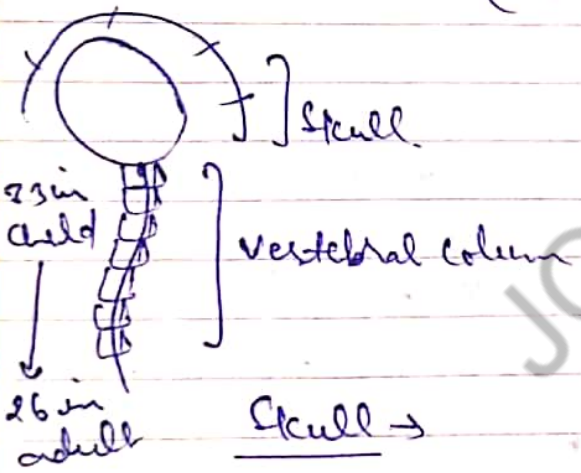 Skull.
33 in
child
vertebral column
26 in
adult
Skull →
JO